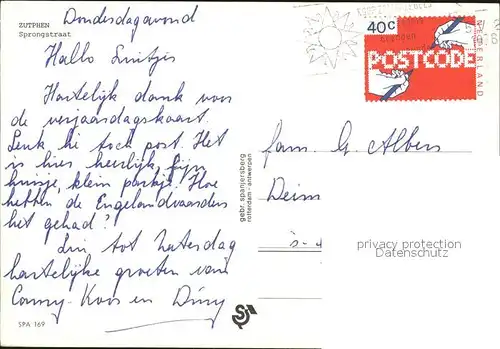 ZUTPHEN
Sprongstraat
Donderdagavond
Hallo Luitjes
Hartelijk dank voor
de verjaardagskaart.
Leuk hè toch post. Het
is hier heerlijk, fijn
huisje, klein parkje. Hoe
hebben de Engelandvaarders
het gehad?
tot Zaterdag
hartelijke groeten van
Conny-Koos en Diny
SPA 169
gebr. spanjersberg
rotterdam - antwerpen
40c
POSTCODE
NEDERLAND
fam. G. Albers
Deim
's-
privacy protection
Datenschutz